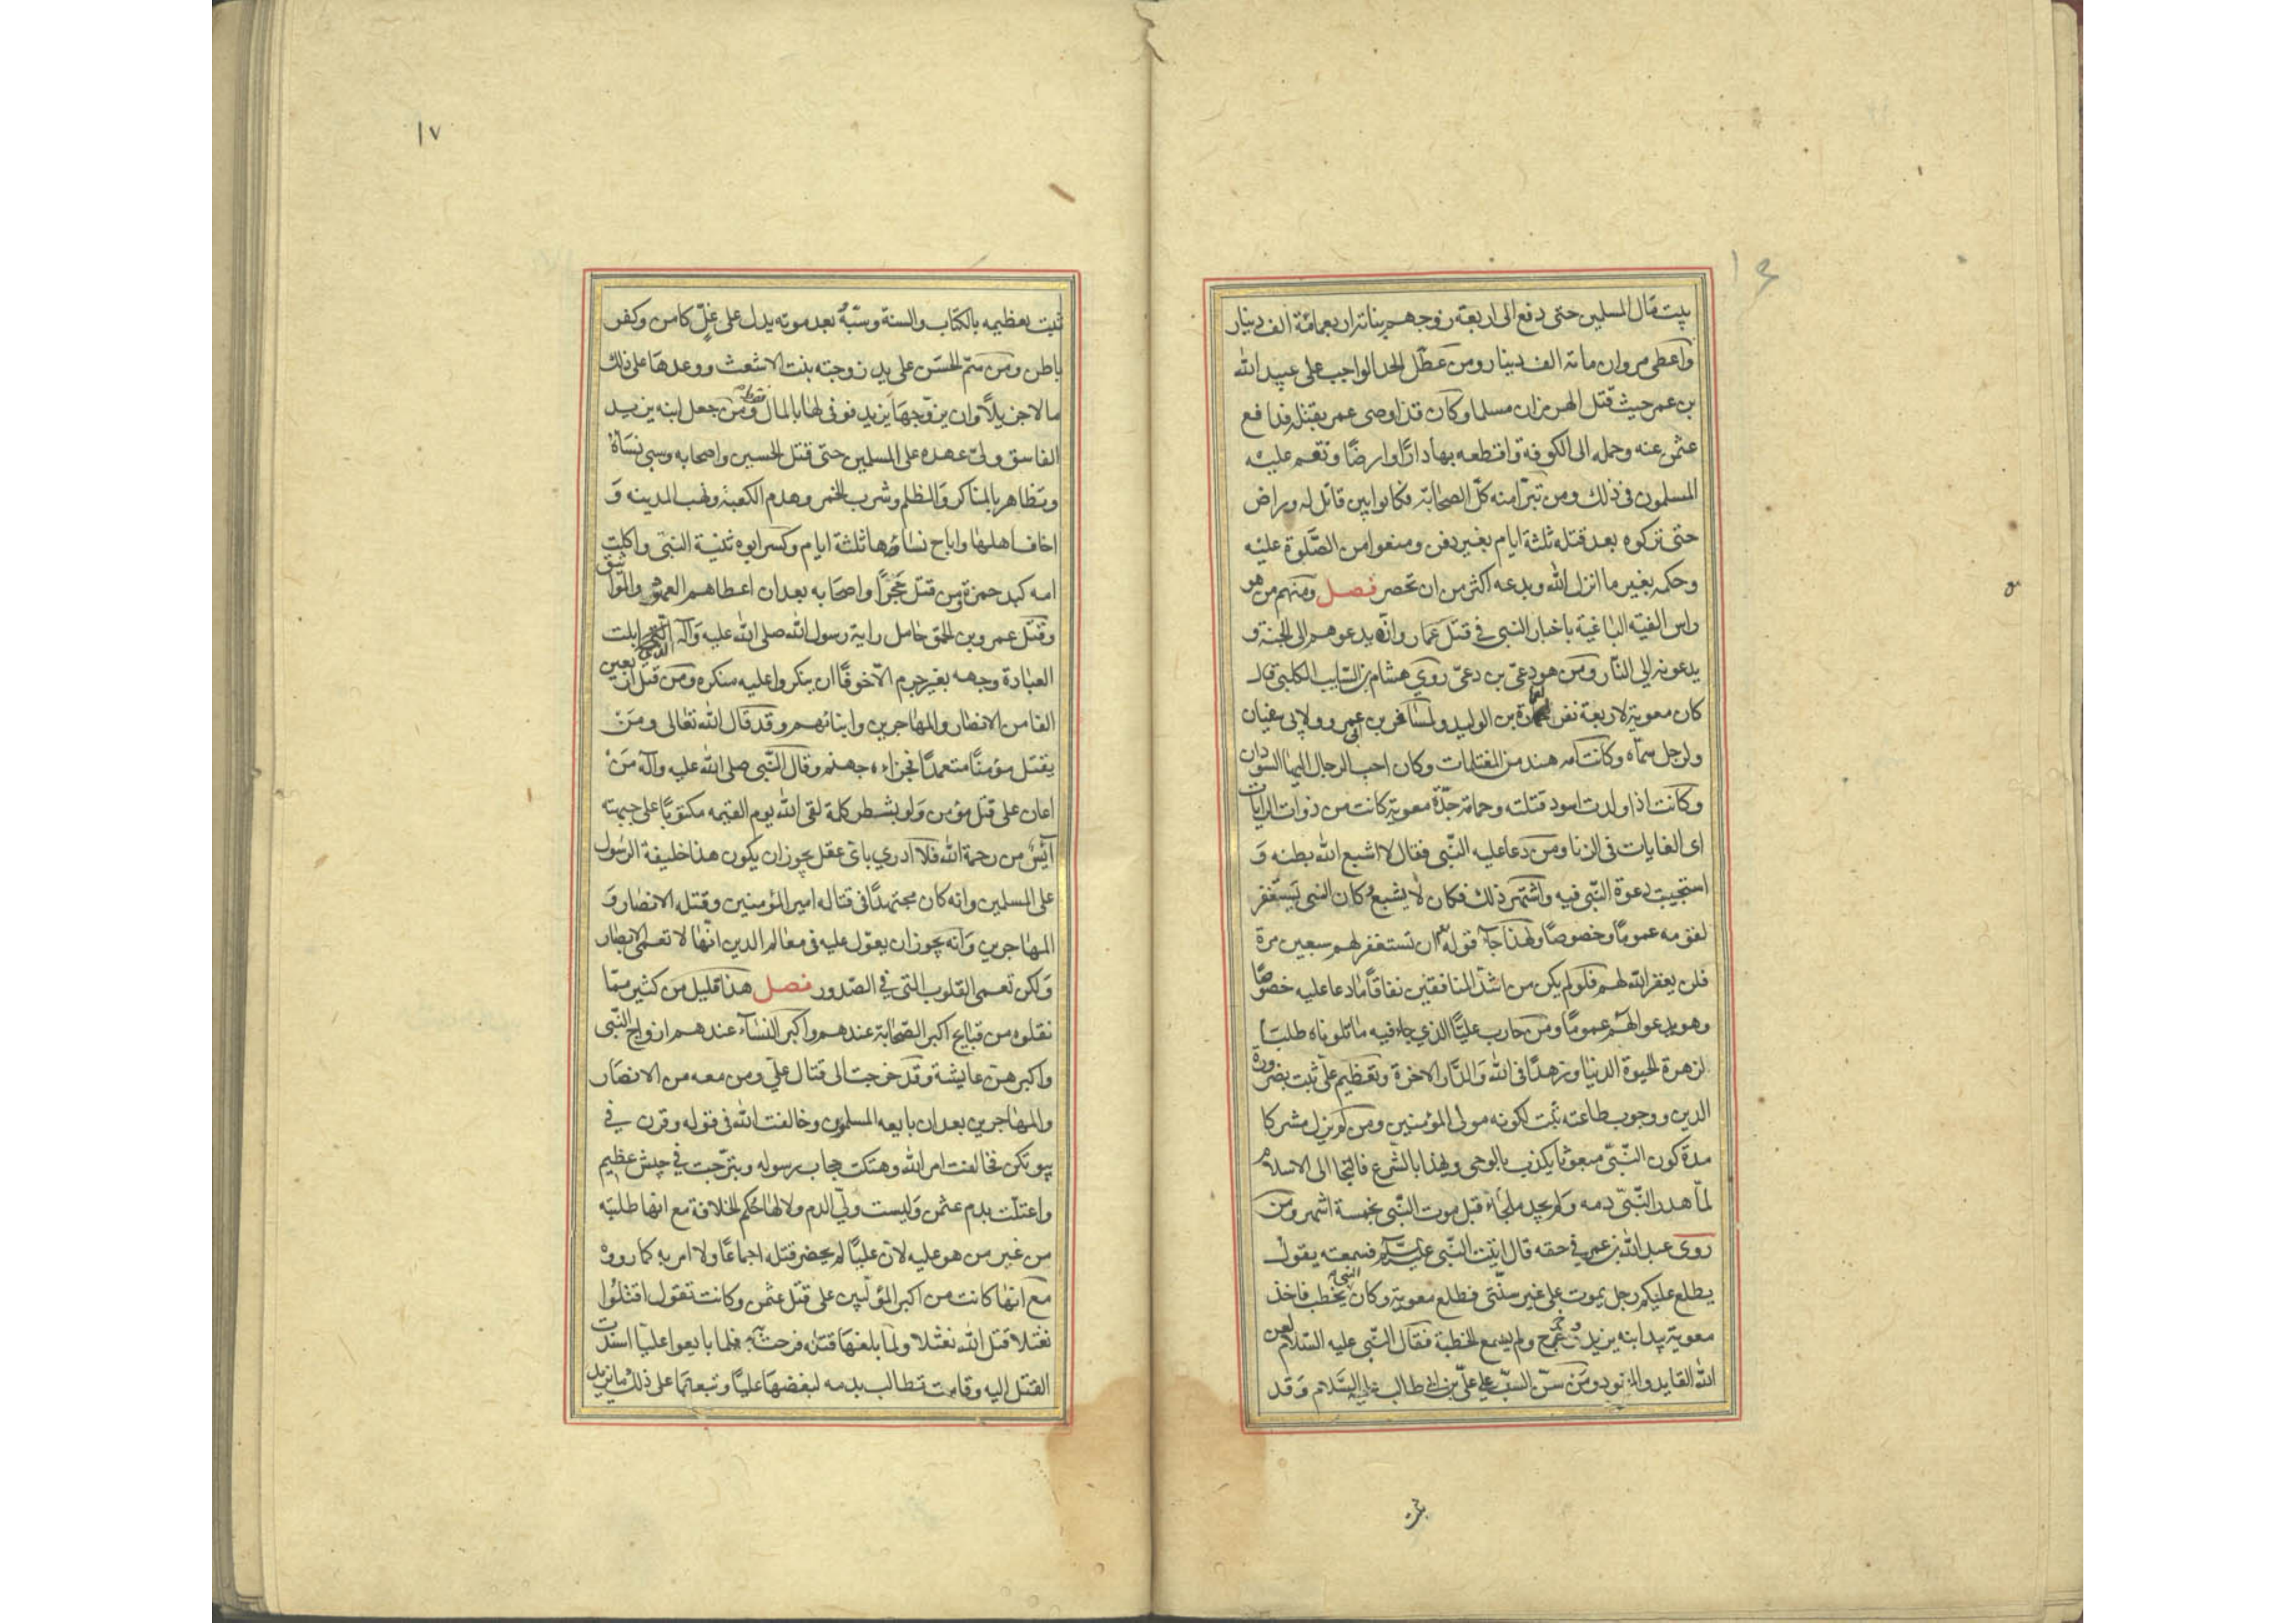 بيت مال المسلمين حتى دفع الى اربعة زوجهم بناته اربعمائة الف دينار
واعطى مروان مائة الف دينار ومن عطّل الحد الواجب على عبيد الله
بن عمر حيث قتل الهرمزان مسلما وكان قد اوصى عمر بقتله فدافع
عثمن عنه وحمله الى الكوفة واقطعه بها دارًا وارضًا ونقم عليه
المسلمون في ذلك ومن تبرّا منه كلّ الصحابة فكانوا بين قاتل له وراض
حتى تركوه بعد قتله ثلثة ايام بغير دفن ومنعوا من الصّلوة عليه
وحكمه بغير ما انزل الله وبدعه اكثر من ان تحصر فصل ومنهم من هو
راس الفئة الباغية باخبار النبي في قتل عمار وانّه يدعوهم الى الجنة و
يدعونه الى النّار ومن هو دعيّ بن دعيّ روي هشام بن السّايب الكلبي قال
كان معوية لاربعة نفر لعمارة بن الوليد ولمسافر بن ابي عمرو ولابي سفيان
ولرجل سمّاه وكانت امه هند من المغتلمات وكان احب الرجال اليها السودان
وكانت اذا ولدت اسود قتلته وحمامة جدّة معوية كانت من ذوات الرايات
اى الغايات في الزنا ومن دعا عليه النّبي فقال لا اشبع الله بطنه و
استجيبت دعوة النّبي فيه واشتهر ذلك فكان لا يشبع وكان النبي يستغفر
لقومه عمومًا وخصوصًا ولهذا جاء قوله ان تستغفر لهم سبعين مرة
فلن يغفر الله لهم فلو لم يكن من اشدّ المنافقين نفاقًا ما دعا عليه خصوصًا
وهو يدعو لهم عمومًا ومن حارب عليًّا الذي جاء فيه ما تلوناه طلبًا
لزهرة الحيوة الدنيا وزهدًا في الله والدّار الاخرة وتعظيم عليّ ثبت بضرورة
الدين ووجوب طاعته ثبت لكونه مولى المؤمنين ومن لم يزل مشركا
مدة كون النّبيّ مبعوثا يكذب بالوحى ويهذا بالشرع فالتجا الى الاسلام
لمّا هدر النّبيّ دمه ولم يجد ملجاء قبل موت النّبي بخمسة اشهر ومن
روى عبد الله بن عمر في حقه قال اتيت النّبي عليه السلام فسمعته يقول
يطلع عليكم رجل يموت على غير سنّتي فطلع معوية وكان النبي يخطب فاخذ
معوية بيد ابنه يزيد وخرج ولم يسمع الخطبة فقال النّبي عليه السّلام لعن
الله القايد والمقود ومن سنّ السبّ على عليّ بن ابي طالب عليه السّلام وقد
ثبت
١٧
ثبت تعظيمه بالكتاب والسنة وسبّهُ بعد موته يدل على غلّ كامن وكفر
باطن ومن سمّ الحسن على يد زوجته بنت الاشعث ووعدها على ذلك
مالا جزيلًا وان يزوّجها يزيد فوفى لها بالمال فقط ومن جعل ابنه يزيد
الفاسق وليّ عهده على المسلمين حتى قتل الحسين واصحابه وسبى نساءه
وتظاهر بالمناكر والظلم وشرب الخمر وهدم الكعبة ونهب المدينه و
اخاف اهلها واباح نساءها ثلثة ايام وكسر ابوه ثنية النبي واكلت
امه كبد حمزة ومن قتل حجرًا واصحابه بعد ان اعطاهم العهود والمواثيق
وقتل عمرو بن الحمق حامل راية رسول الله صلى الله عليه وآله الذي ابلت
العبادة وجهه بغير جرم الّا خوفًا ان ينكروا عليه منكره ومن قتل اربعين
الفا من الانصار والمهاجرين وابنائهم وقد قال الله تعالى ومَن
يقتل مؤمنًا متعمدًا فجزاءه جهنم وقال النّبي صلى الله عليه وآله مَن
اعان على قتل مؤمن ولو بشطر كلمة لقى الله يوم القيمه مكتوبًا على جبهته
آيس من رحمة الله فلا ادري باىّ عقل يجوز ان يكون هذا خليفة الرسول
على المسلمين وانه كان مجتهدًا في قتاله امير المؤمنين وقتله الانصار و
المهاجرين وانه يجوز ان يعوّل عليه في معالم الدين انّها لا تعمى الابصار
ولكن تعمى القلوب التى في الصّدور فصل هذا قليل من كثير ممّا
نقلوه من قبايح اكبر الصّحابة عندهم واكبر النساء عندهم ازواج النّبى
واكبرهنّ عايشة وقد خرجت الى قتال عليّ ومن معه من الانصار
والمهاجرين بعد ان بايعه المسلمون وخالفت الله في قوله وقرن في
بيوتكن فخالفت امر الله وهتكت حجاب رسوله وتبرّجت في جيش عظيم
واعتلّت بدم عثمن وليست وليّ الدم ولا لها حُكم الخلافة مع انّها طلبته
من غير من هو عليه لانّ عليًّا لم يحضر قتله اجماعًا ولا امر به كما رووه
مع انّها كانت من اكبر المؤلّبين على قتل عثمن وكانت تقول اقتلوا
نعثلا قتل الله نعثلا ولمّا بلغها قتله فرحت به فلما بايعوا عليّا اسندت
القتل اليه وقامت تطالب بدمه لبغضها عليًّا وتبعها على ذلك ما يزيد